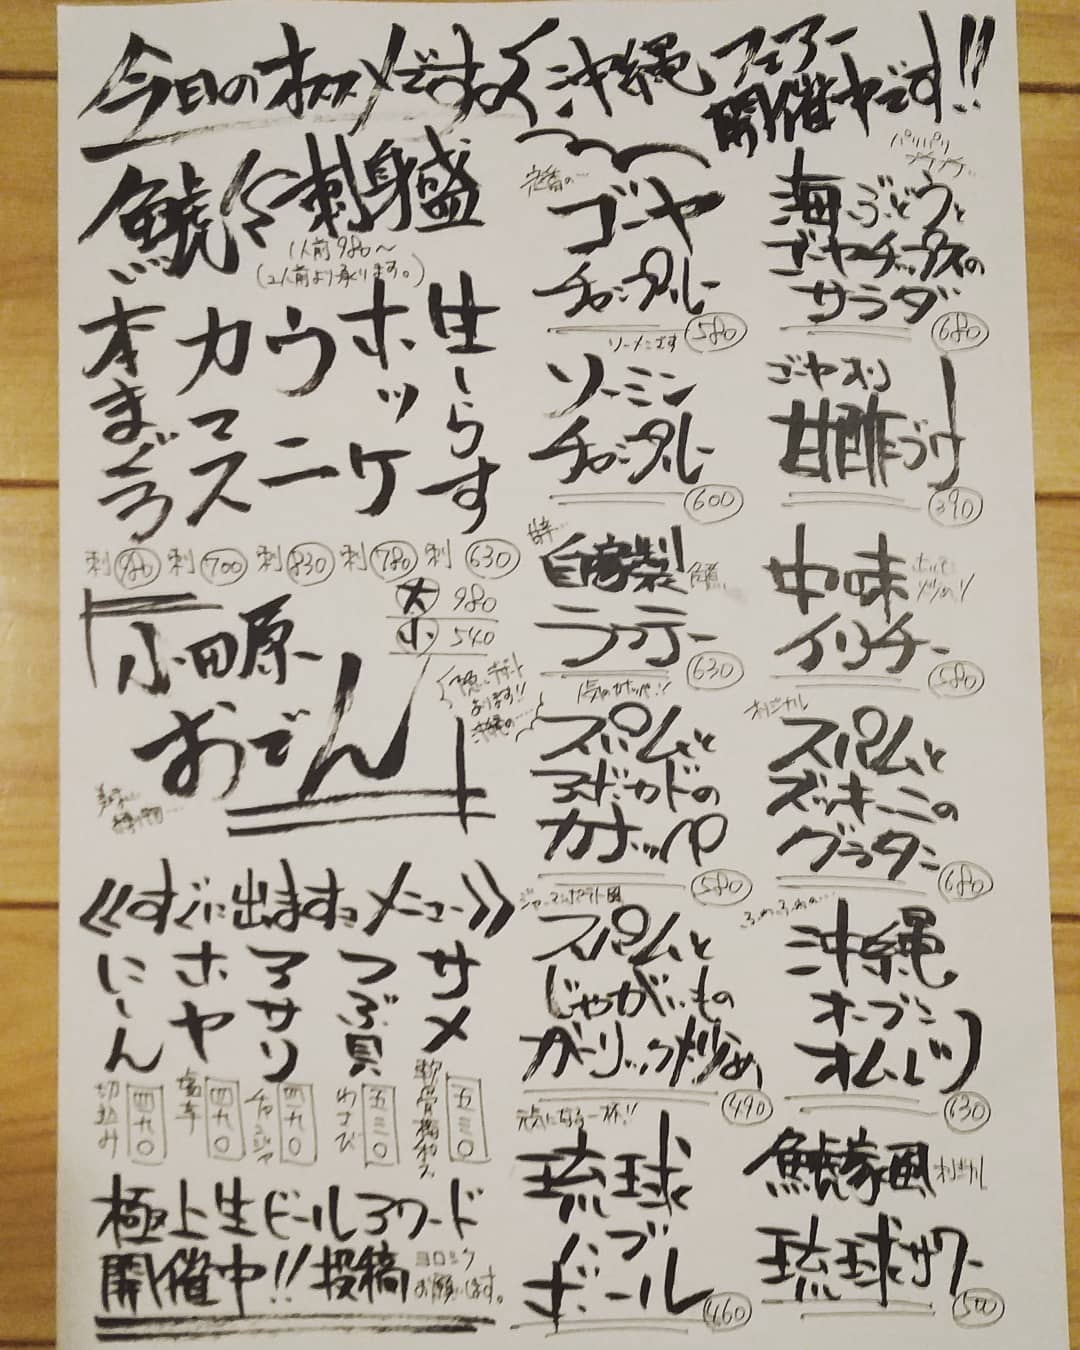 今日のオススメですよ
沖縄フェアー
開催中です!!
鯱々刺身盛
1人前980〜
(2人前より承ります。)
本まぐろ
刺 980
カマス
刺 700
ウニ
刺 830
ホッケ
刺 780
生しらす
刺 630
小田原
おでん
大 980
小 540
《すぐに出ますよメニュー》
にしん
切込み
四九〇
ホヤ
塩辛
四九〇
アサリ
チャンジャ
四九〇
つぶ貝
わさび
五三〇
サメ
軟骨梅和え
五三〇
極上生ビールアワード
開催中!!投稿
ヨロシク
お願いします。
定番の…
ゴーヤ
チャンプルー
580
ソーメンです
ソーミン
チャンプルー
600
自家製
ラフテー
630
スパムと
アボカドの
カナッペ
580
ジャーマンポテト風
スパムと
じゃがいもの
ガーリック炒め
490
元気になる一杯!!
琉球
ハブ
ボール
460
パリパリ
海ぶどうと
ゴーヤチップスの
サラダ
680
ゴーヤオン
甘酢づけ
390
中味
イリチー
580
オリジナル
スパムと
ズッキーニの
グラタン
680
ふわふわの…
沖縄
オープン
オムレツ
630
鯱家風
オリジナル
琉球サワー
500